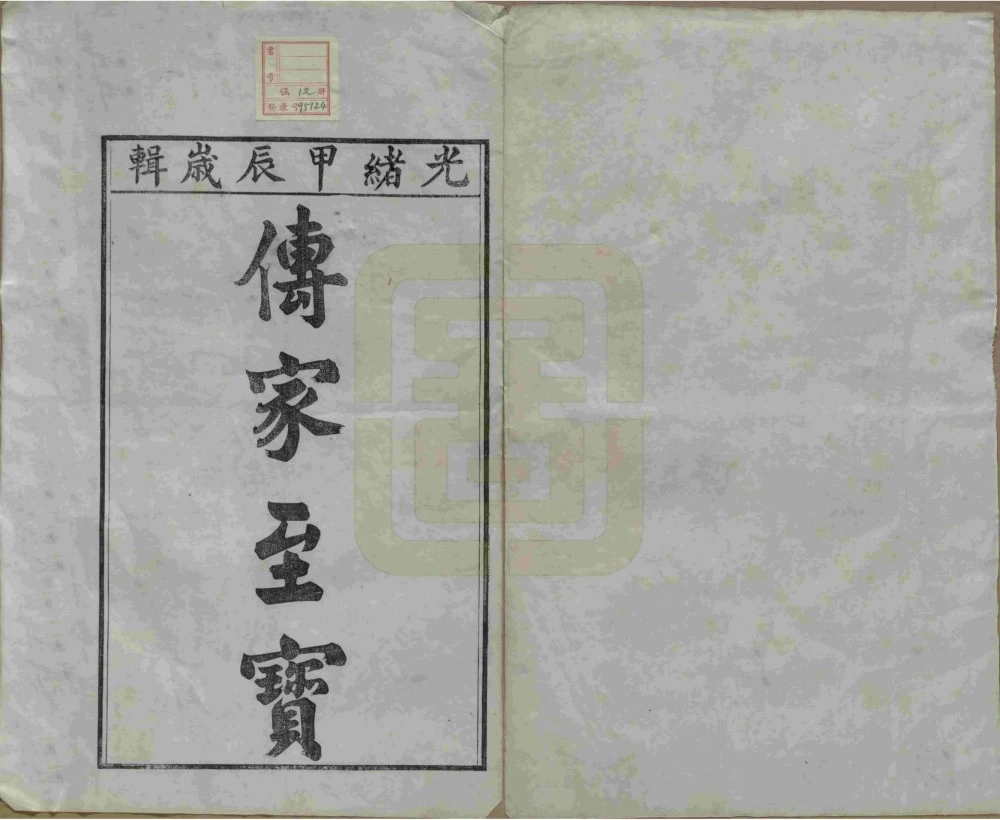 光緒甲辰歲輯
傳家至寶
書號
伍 12 冊
登錄號 95124